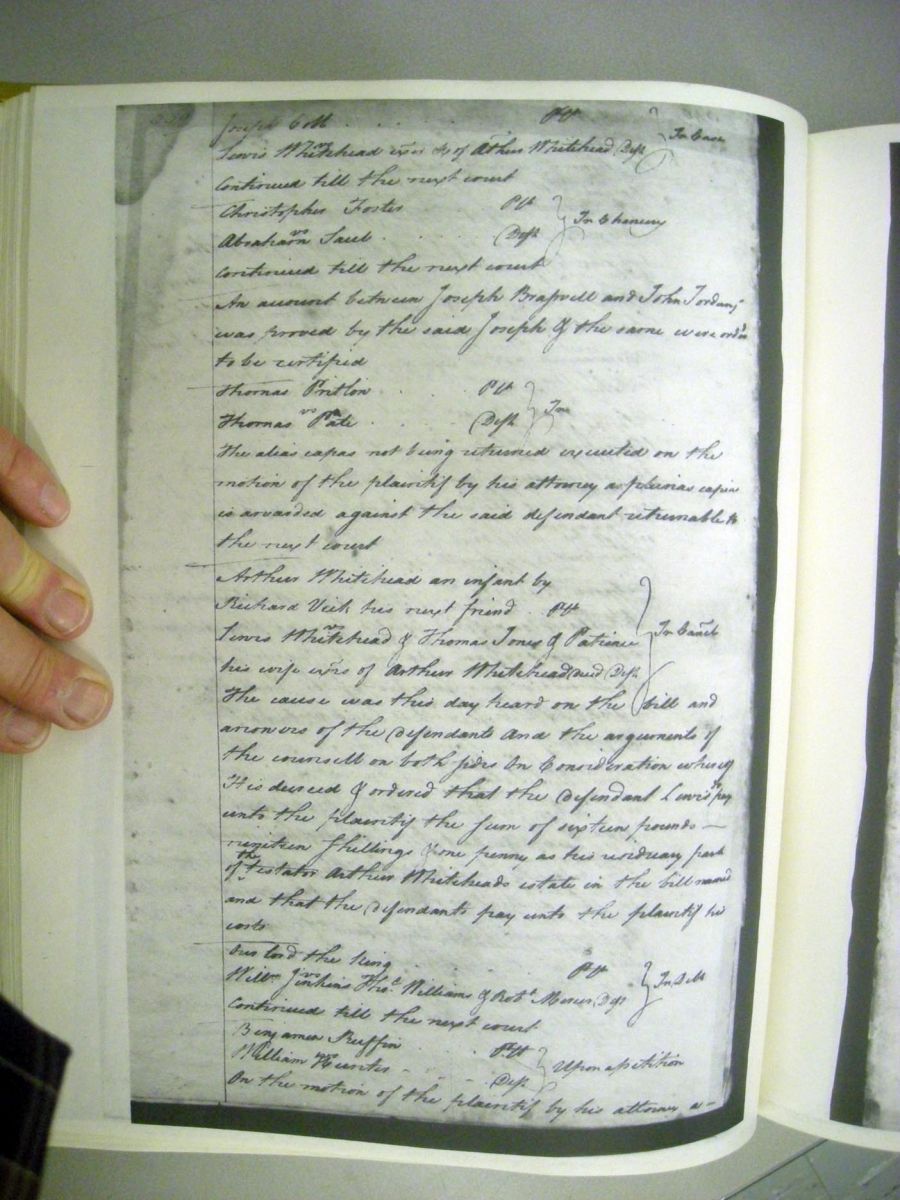 Joseph Cobb . . . . Plt
vs
Lewis Whitehead exor &c of Arthur Whitehead Deft } In Case
Continued till the next court
Christopher Foster Plt
vs } In Chancery
Abraham Saul . . . . . Deft
Continued till the next court
An account between Joseph Braswell and John Jordan,
was proved by the said Joseph & the same were ordd
to be certified
Thomas Pritlow . . . . Plt
vs
Thomas Pate . . . . Deft
The alias capas not being returned executed on the
motion of the plaintif by his attorney a plurias capias
is awarded against the said defendant returnable to
the next court
Arthur Whitehead an infant by
Richard Vick his next friend . Plt
vs
Lewis Whitehead & Thomas Jones & Patience } In Cancl
his wife exrs of Arthur Whitehead decd Deft
The cause was this day heard on the bill and
answers of the defendants and the arguments of
the counsell on both sides On Consideration whereof
It is decreed & ordered that the defendant Lewis pay
unto the plaintif the sum of sixteen pounds —
nineteen shillings & one penny as his residuary part
of the testator Arthur Whiteheads estate in the bill named
and that the defendants pay unto the plaintif his
costs
Our lord the King . . . . Plt
vs
Willm Jinkins Thos Williams & Robt Mercer Defs } In Debt
Continued till the next court
Benjamen Ruffin . . Plt
vs } Upon a petition
William Hunter - . - . - . Deft
On the motion of the plaintif by his attorney a-